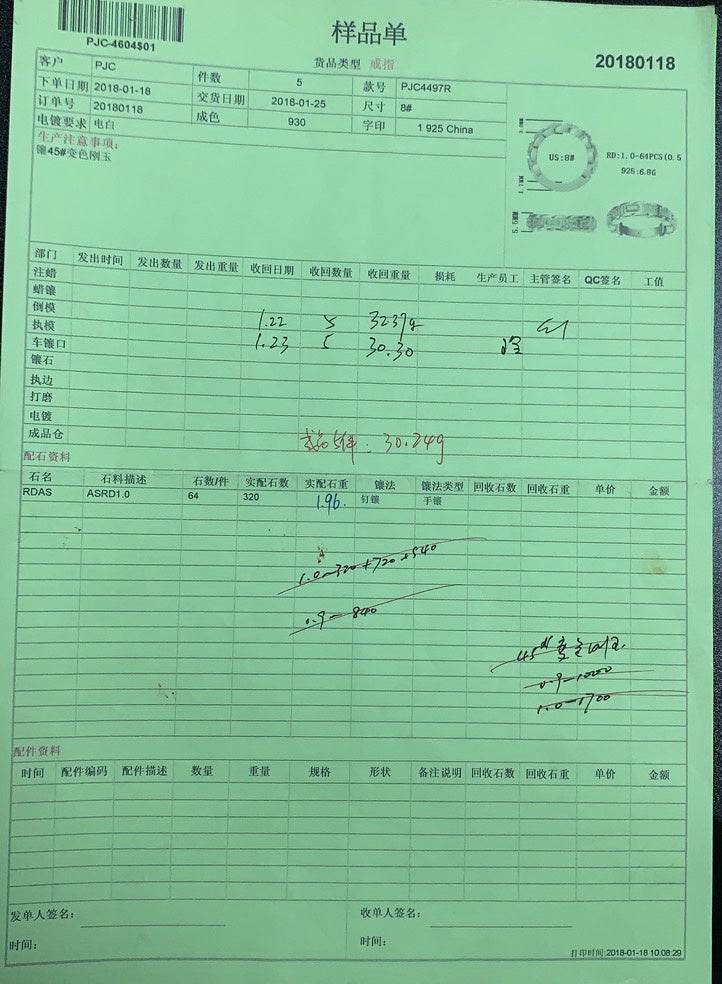 PJC-4604$01
样品单
货品类型 戒指
20180118
客户 PJC 件数 5 款号 PJC4497R
下单日期 2018-01-18 交货日期 2018-01-25 尺寸 8#
订单号 20180118 成色 930 字印 1 925 China
电镀要求 电白
生产注意事项:
镶45#变色刚玉
US:8#
RD:1.0-64PCS(0.5
925:6.8G
5.5MM
部门 发出时间 发出数量 发出重量 收回日期 收回数量 收回重量 损耗 生产员工 主管签名 QC签名 工值
注蜡
蜡镶
倒模
执模 1.22 5 32.37g
车镶口 1.23 5 30.30
镶石
执边
打磨
电镀
成品仓
5件: 30.24g
配石资料
石名 石料描述 石数/件 实配石数 实配石重 镶法 镶法类型 回收石数 回收石重 单价 金额
RDAS ASRD1.0 64 320 1.96. 钉镶 手镶
1.0-320+720+540
0.9-840
45# 变色刚玉
0.9-1000
1.0-1700
配件资料
时间 配件编码 配件描述 数量 重量 规格 形状 备注说明 回收石数 回收石重 单价 金额
发单人签名: 收单人签名:
时间: 时间:
打印时间:2018-01-18 10:08:29